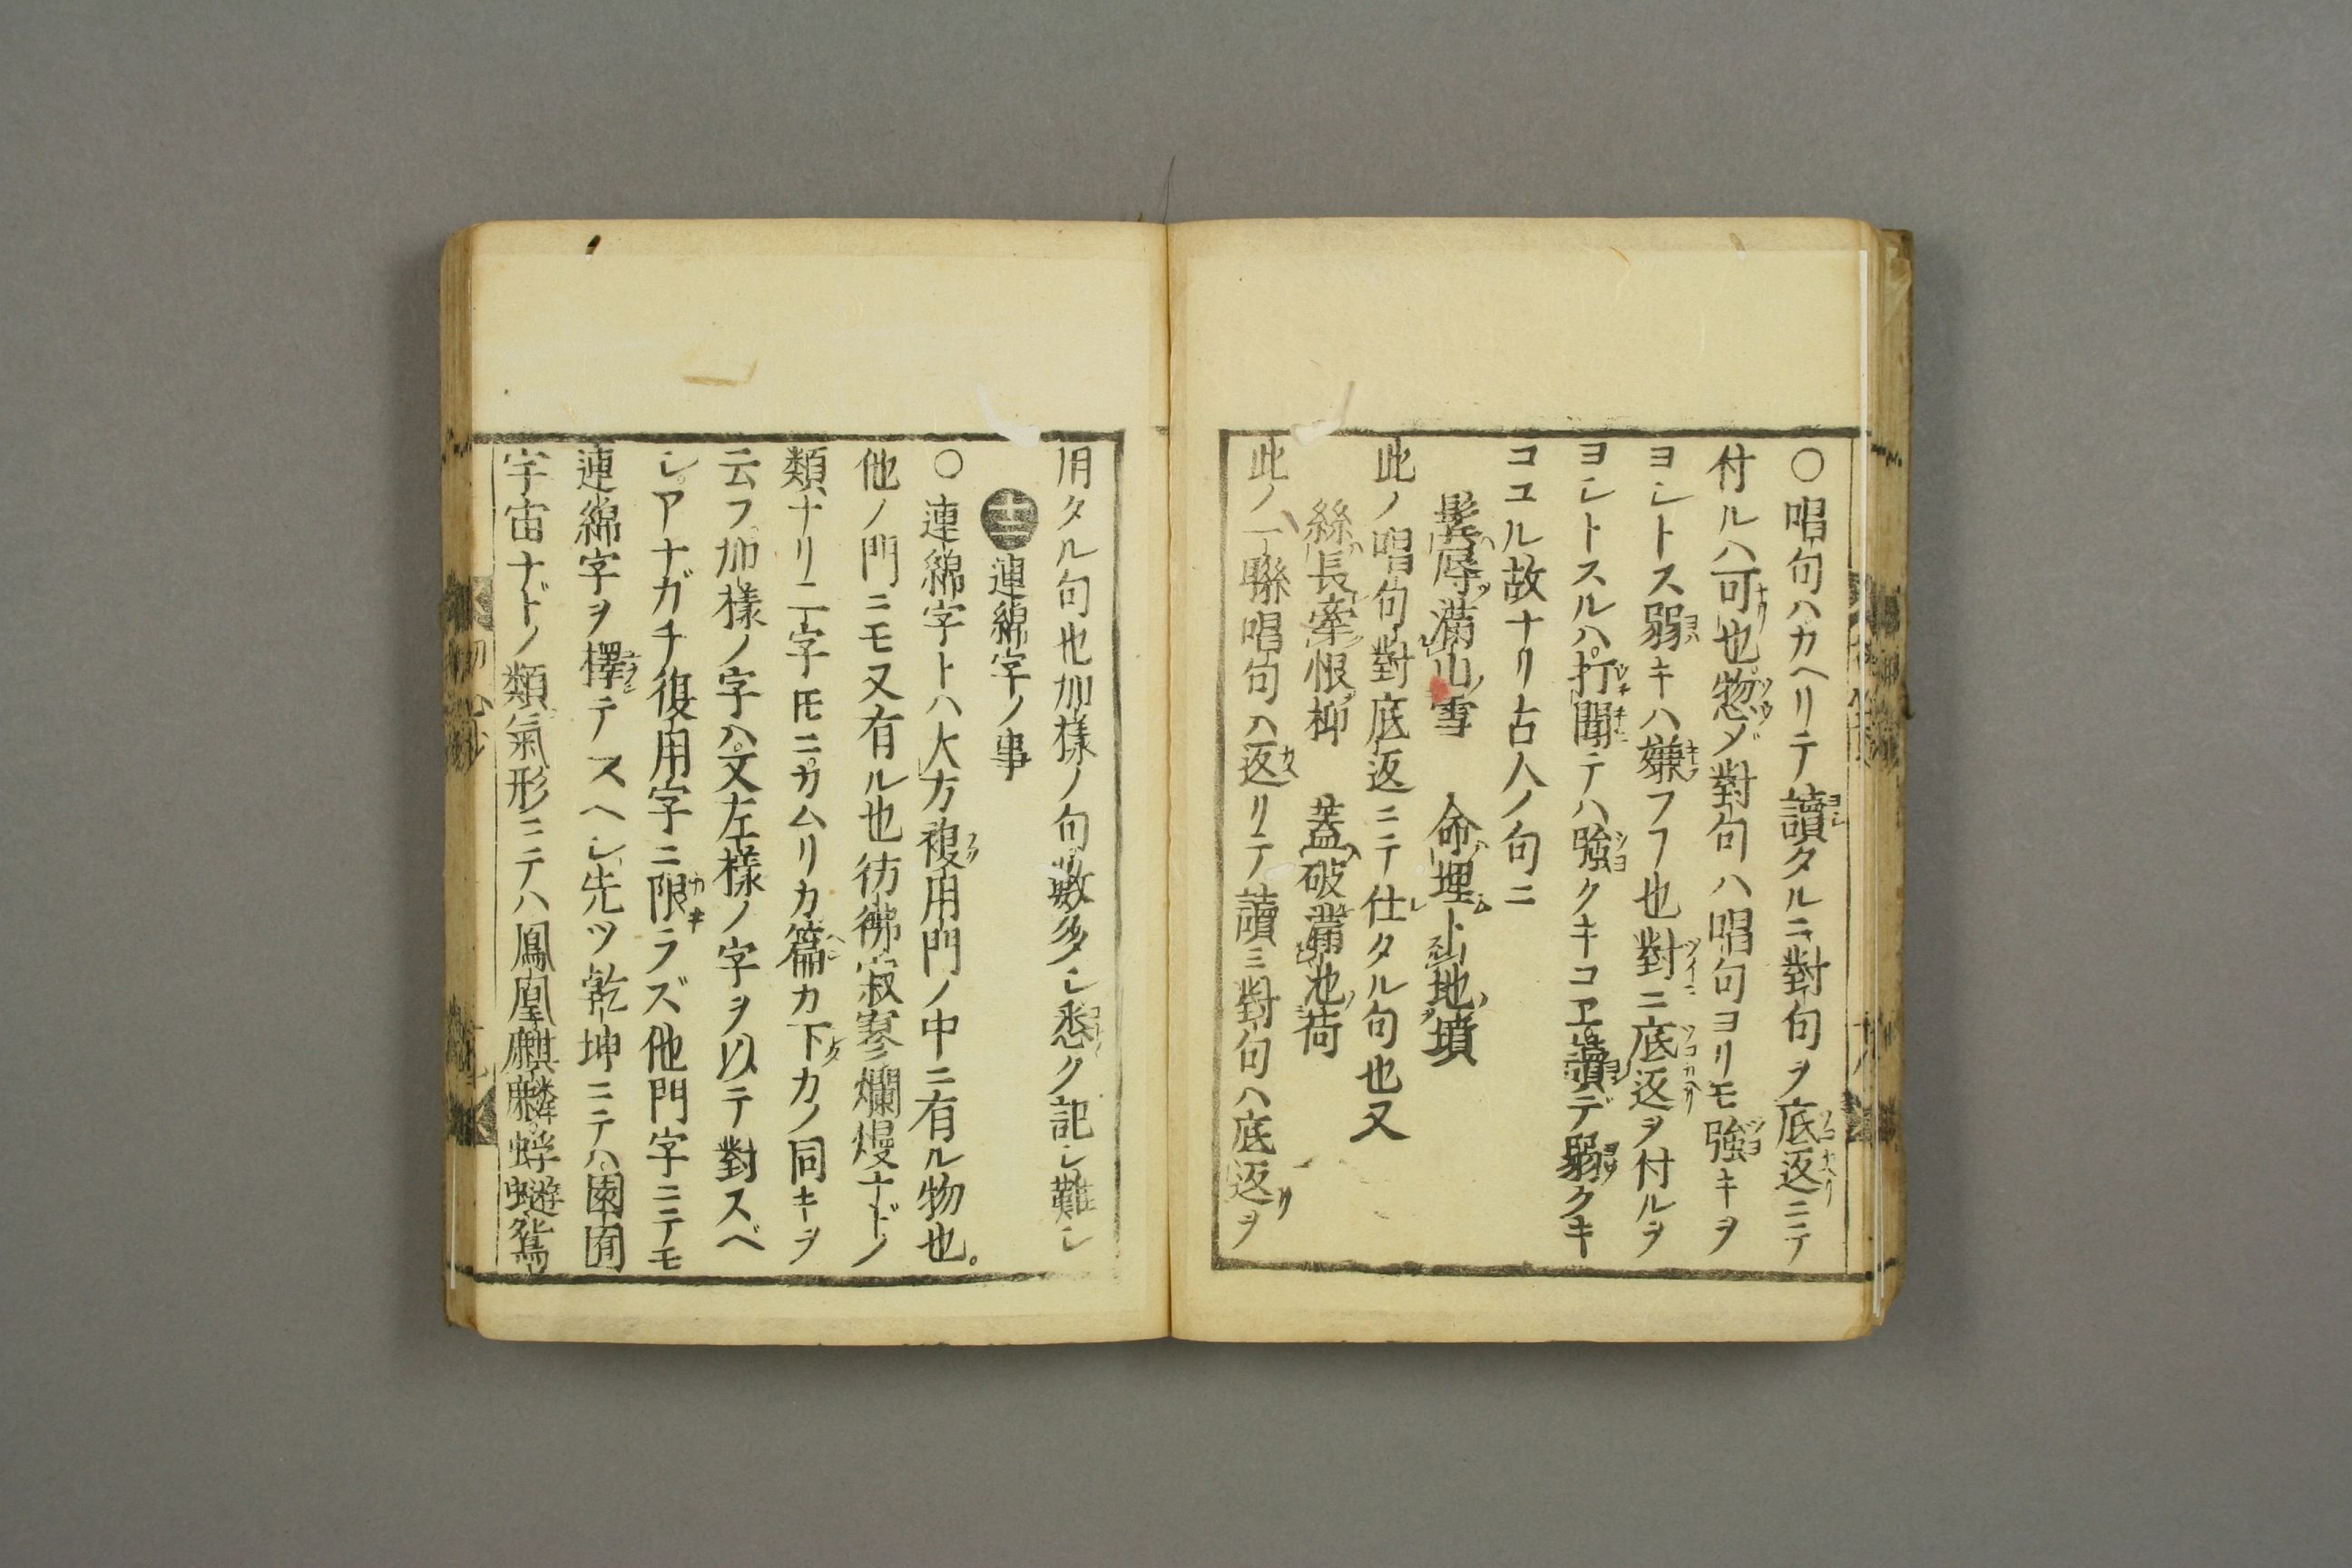 〇唱句ハカヘリテ讀タルニ對句ヲ底返ニテ
付ルハ可也惣ダ對句ハ唱句ヨリモ強キヲ
ヨシトス弱キハ嫌フフ也對ニ底返ヲ付ルヲ
ヨシトスルハ打聞テハ強クキコヱ讀デ弱クキ
コユル故ナリ古人ノ句ニ
髮辱滿山雪　命埋卜地墳
此ノ唱句對底返ニテ仕タル句也又
絲長牽恨柳　蓋破滿池荷
此ノ一聯唱句ハ返リテ讀ミ對句ハ底返ヲ
用タル句也加樣ノ句數多シ悉ク記シ難シ
十二連綿字ノ事
〇連綿字トハ大方複用門ノ中ニ有ル物也。
他ノ門ニモ又有ル也彷彿寂寥爛熳ナドノ
類ナリ二字𪜈ニカムリカ篇カ下カノ同キヲ
云フ加樣ノ字ハ又左樣ノ字ヲ以テ對スベ
シアナガチ復用字ニ限ラズ他門字ニテモ
連綿字ヲ擇テスヘシ先ツ乾坤ニテハ園囿
宇宙ナドノ類氣形ニテハ鳳凰麒麟蜉蝣鴛